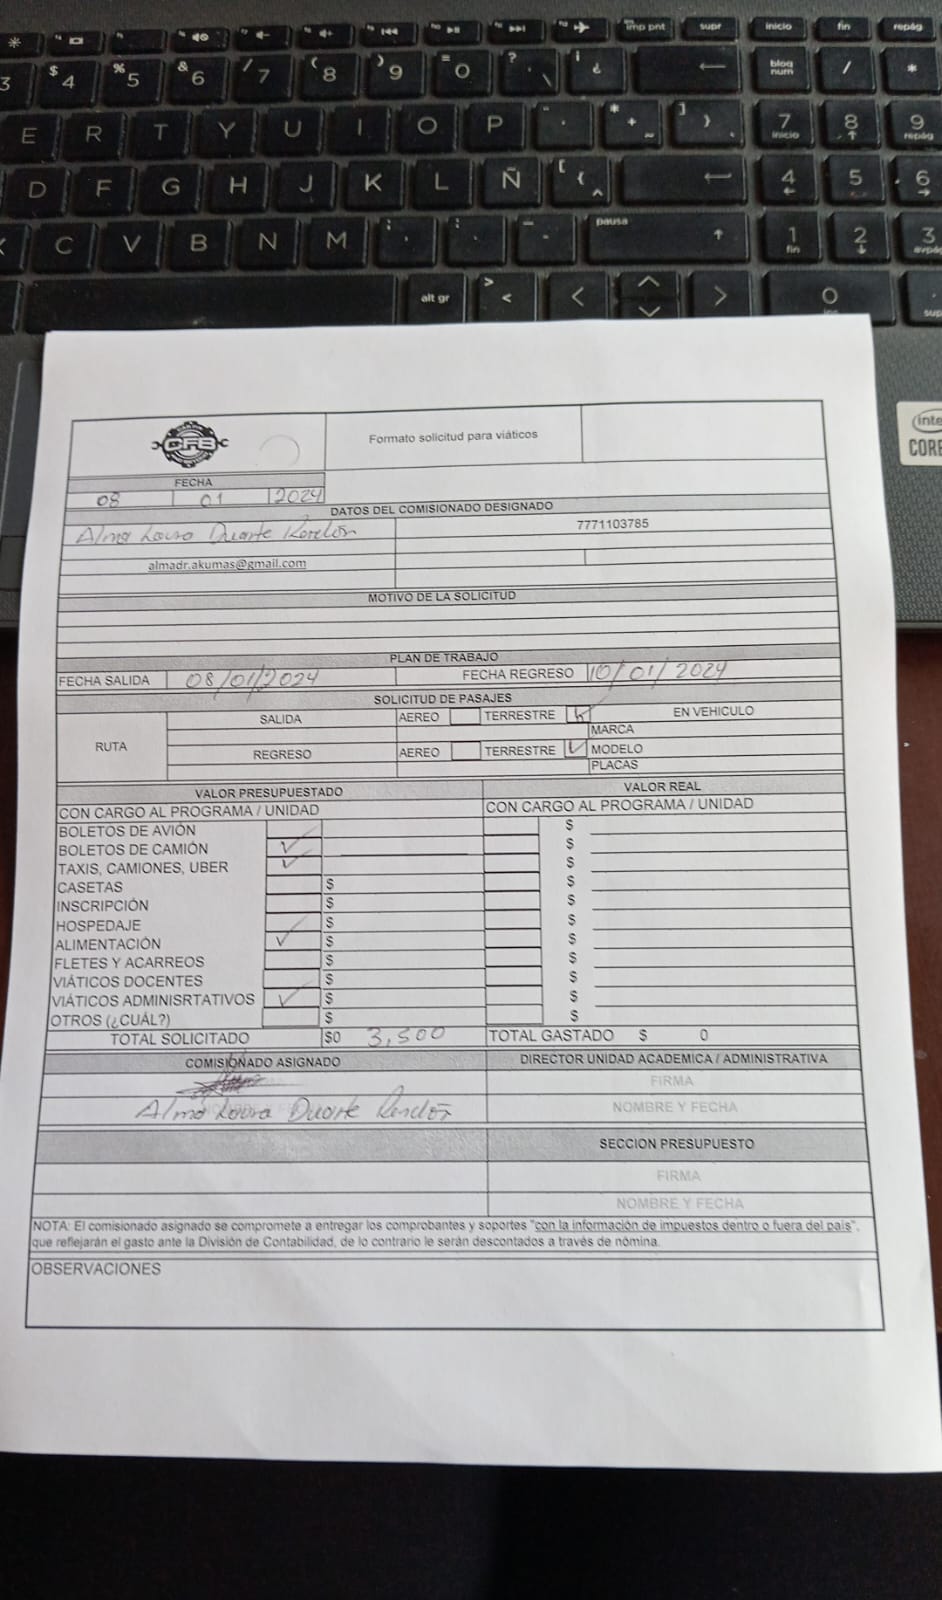 imp pnt supr inicio fin repág
3 $ 4 % 5 & 6 / 7 ( 8 ) 9 = 0 ? \ ¡ ¿ bloq num / *
E R T Y U I O P * + ~ ] } 7 inicio 8 9 repág
D F G H J K L Ñ [ { ^ 4 5 6
C V B N M ; , : . _ - pausa 1 fin 2 3
alt gr > < 0
intel
CORE
CFB
Formato solicitud para viáticos
FECHA
08 01 2024
DATOS DEL COMISIONADO DESIGNADO
Alma Laura Duarte Rendón 7771103785
almadr.akumas@gmail.com
MOTIVO DE LA SOLICITUD
PLAN DE TRABAJO
FECHA SALIDA 08/01/2024 FECHA REGRESO 10/01/2024
SOLICITUD DE PASAJES
RUTA SALIDA AEREO TERRESTRE EN VEHICULO
MARCA
REGRESO AEREO TERRESTRE MODELO
PLACAS
VALOR PRESUPUESTADO VALOR REAL
CON CARGO AL PROGRAMA / UNIDAD CON CARGO AL PROGRAMA / UNIDAD
BOLETOS DE AVIÓN $
BOLETOS DE CAMIÓN ✓ $
TAXIS, CAMIONES, UBER ✓ $
CASETAS $ $
INSCRIPCIÓN $ $
HOSPEDAJE $ $
ALIMENTACIÓN ✓ $ $
FLETES Y ACARREOS $ $
VIÁTICOS DOCENTES $ $
VIÁTICOS ADMINISRTATIVOS ✓ $ $
OTROS (¿CUÁL?) $ $
TOTAL SOLICITADO $0 3,500 TOTAL GASTADO $ 0
COMISIONADO ASIGNADO DIRECTOR UNIDAD ACADEMICA / ADMINISTRATIVA
FIRMA
Alma Laura Duarte Rendón NOMBRE Y FECHA
SECCION PRESUPUESTO
FIRMA
NOMBRE Y FECHA
NOTA: El comisionado asignado se compromete a entregar los comprobantes y soportes "con la información de impuestos dentro o fuera del país",
que reflejarán el gasto ante la División de Contabilidad, de lo contrario le serán descontados a través de nómina.
OBSERVACIONES